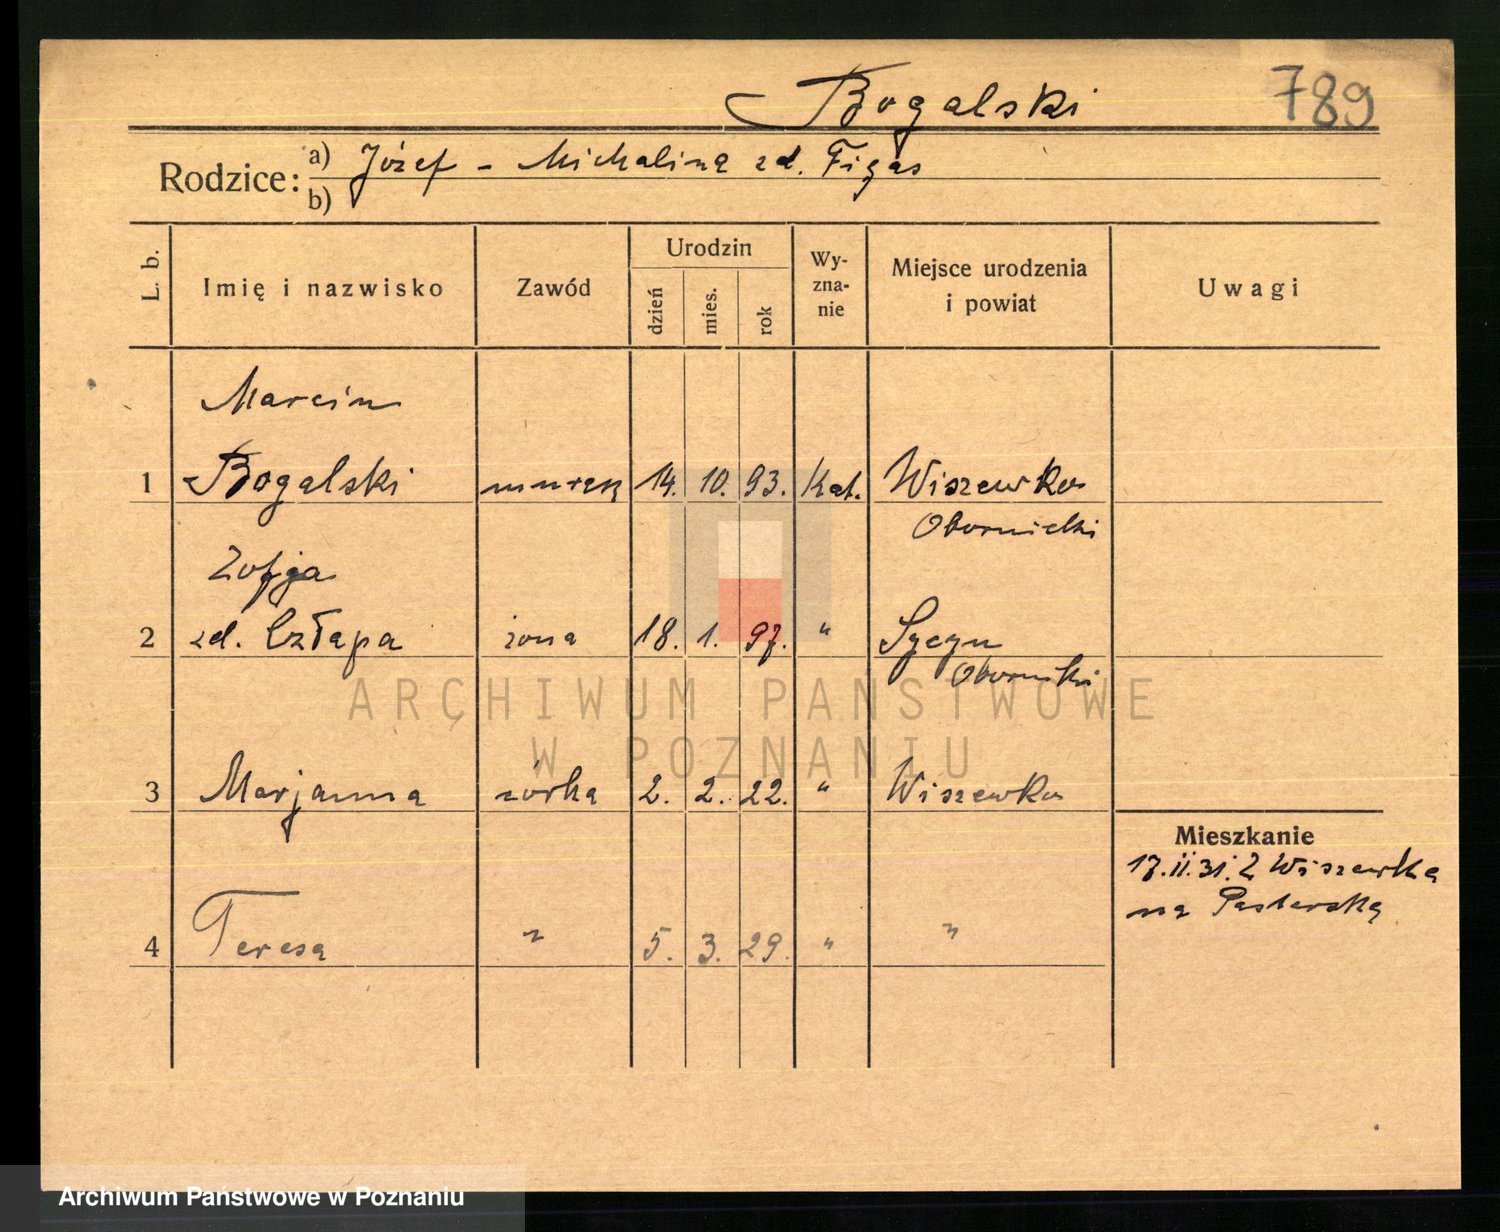 Bogalski 789
Rodzice: a) Józef - Michalina zd. Figas
b)
L. b. Imię i nazwisko Zawód Urodzin dzień mies. rok Wy-zna-nie Miejsce urodzenia i powiat Uwagi
Marcin
1 Bogalski murarz 14. 10. 93. Kat. Wiszewko
Obornicki
Zofja
2 zd. Człapa żona 18. 1. 97. " Sycyn
Oborniki
3 Marjanna córka 2. 2. 22. " Wiszewko
Mieszkanie
17.II.31. z Wiszewka
na Pasterską
4 Teresa " 5. 3. 29. " "
ARCHIWUM PAŃSTWOWE
W POZNANIU
Archiwum Państwowe w Poznaniu